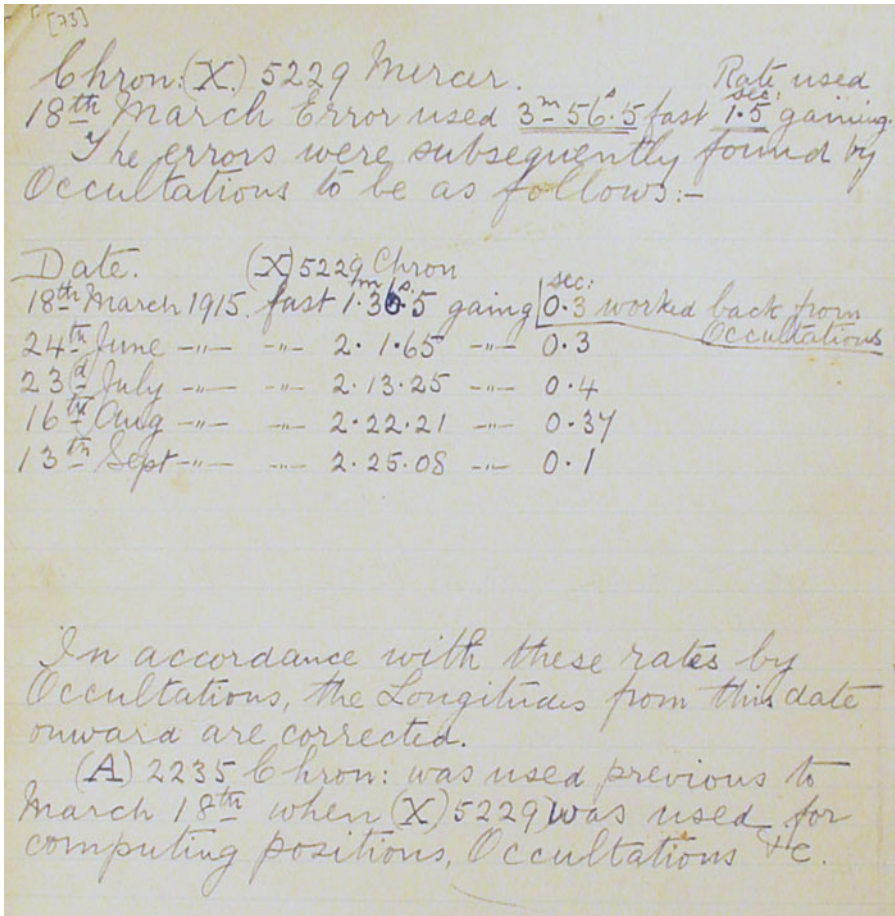 [73]
Chron: (X.) 5229 Mercer. Rate used
18th March Error used 3m 56s.5 fast 1.5 sec: gaining.
The errors were subsequently found by
Occultations to be as follows:-
Date. (X) 5229 Chron
18th March 1915. fast 1m.36s.5 gaing 0.3 sec: worked back from
Occultations
24th June -"- -"- 2. 1.65 -"- 0.3
23d July -"- -"- 2.13.25 -"- 0.4
16th Aug -"- -"- 2.22.21 -"- 0.37
13th Sept -"- -"- 2.25.08 -"- 0.1
In accordance with these rates by
Occultations, the Longitudes from this date
onward are corrected.
(A) 2235 Chron: was used previous to
March 18th when (X) 5229) was used for
computing positions, Occultations &c.